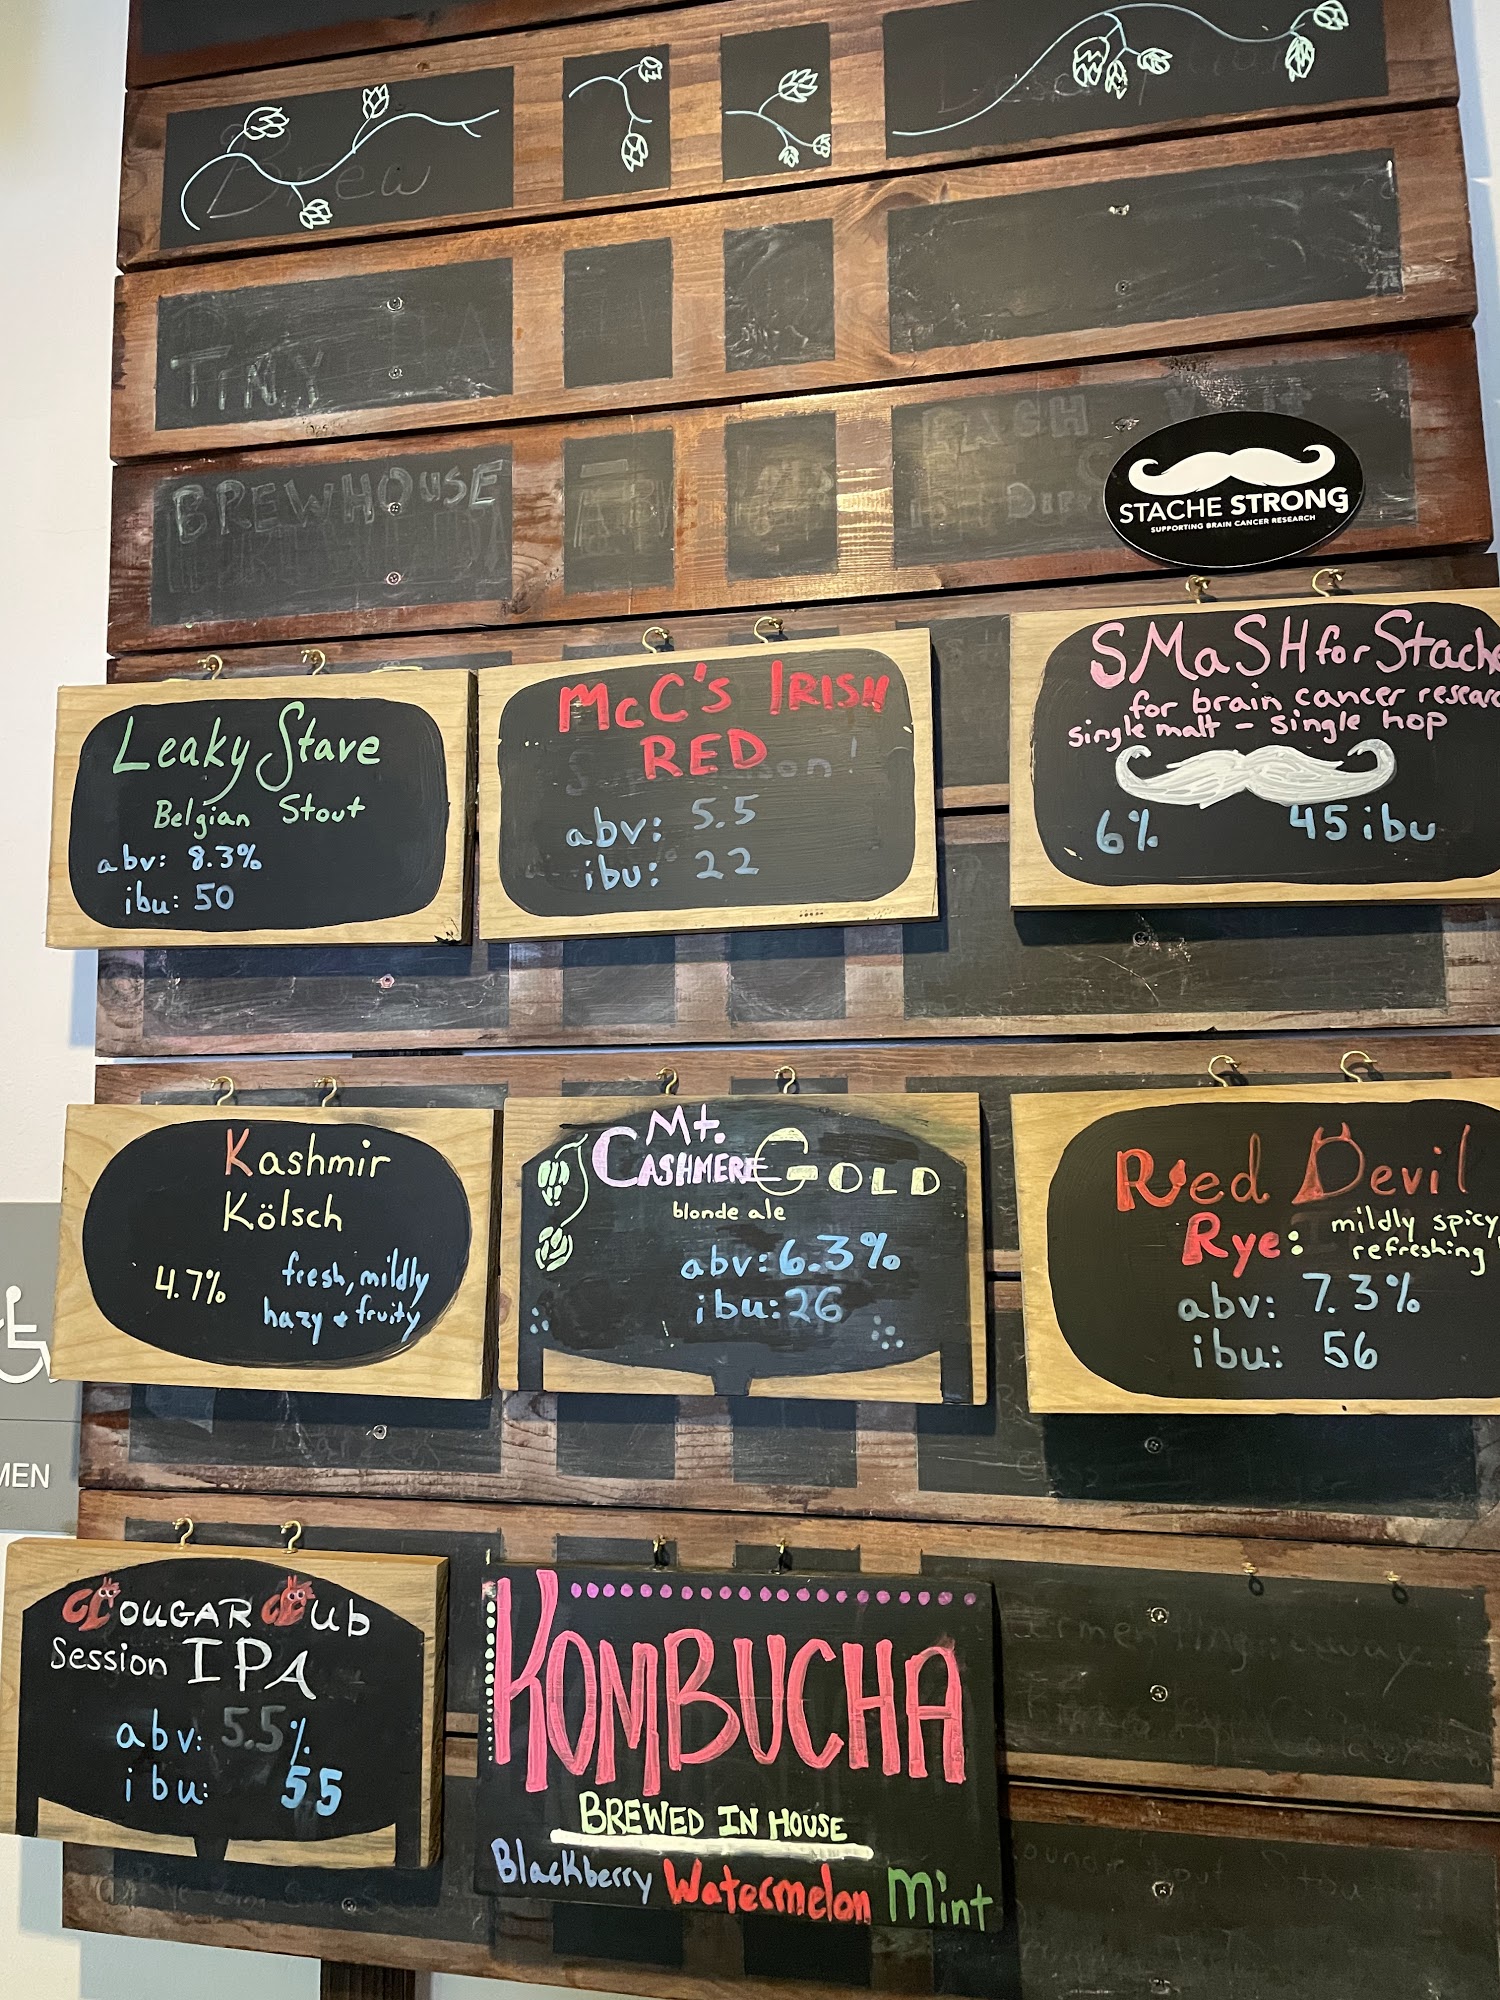 Brew
TINY
BREWHOUSE
EACH
STACHE STRONG
SUPPORTING BRAIN CANCER RESEARCH
Leaky Stave
Belgian Stout
abv: 8.3%
ibu: 50
McC's IRISH
RED
abv: 5.5
ibu: 22
SMaSH for Stache
for brain cancer resear
single malt - single hop
6% 45 ibu
Kashmir
Kölsch
4.7%
fresh, mildly
hazy + fruity
Mt.
CASHMERE GOLD
blonde ale
abv: 6.3%
ibu: 26
Red Devil
Rye: mildly spicy
refreshing
abv: 7.3%
ibu: 56
MEN
COUGAR Cub
Session IPA
abv: 5.5%
ibu: 55
KOMBUCHA
BREWED IN HOUSE
Blackberry Watermelon Mint